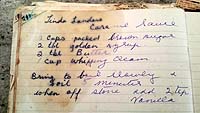 Linda Sanders
Caramel Sauce
1 Cups packed brown sugar
2 tbl golden syrup
2 tbl Butter
1 cup whipping cream
Bring to boil slowly &
boil minutes
when off stove add 2 tsp
Vanilla